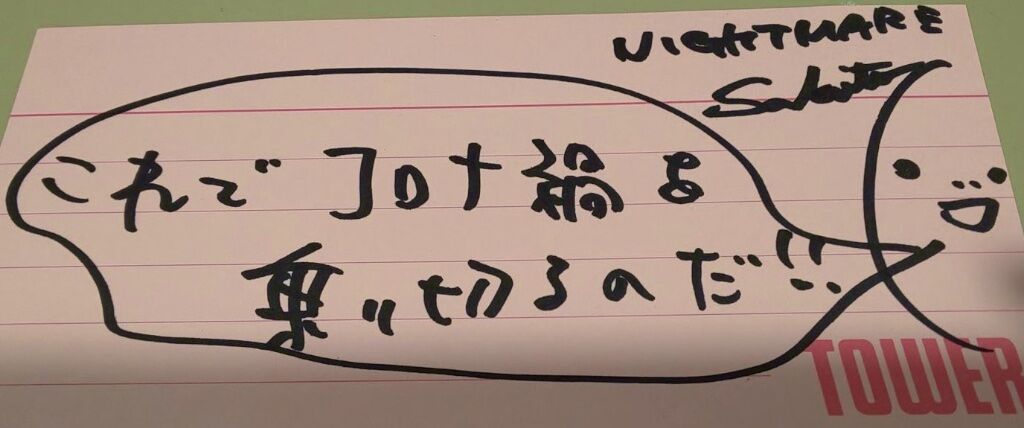 NIGHTMARE
Sakito
これでコロナ禍も
乗り切るのだ!!
TOWER